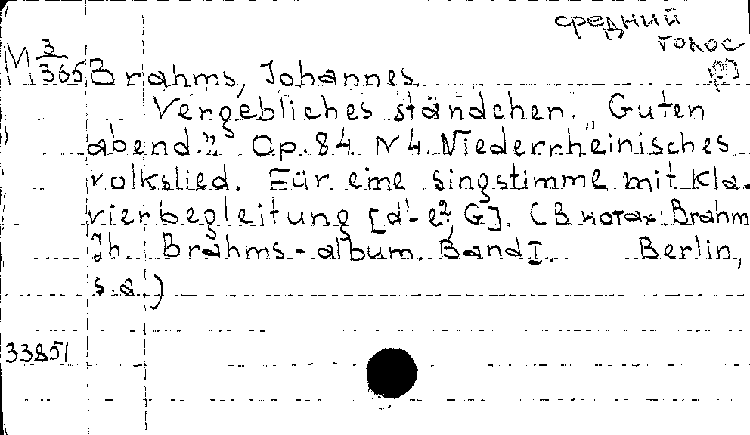 средний
голос
М 3/365 Brahms, Johannes
Vergebliches ständchen. „Guten
abend." Op. 84 N 4. Niederrheinisches
volkslied. Für eine singstimme mit kla-
vierbegleitung [d¹-e², G]. (В нотах: Brahm
Jh. Brahms-album. Band I. Berlin,
s.a.)
33851